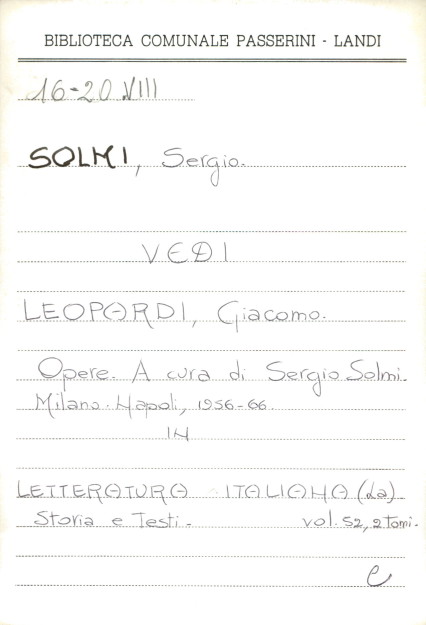 BIBLIOTECA COMUNALE PASSERINI - LANDI
16-20 VIII
SOLMI, Sergio.
VEDI
LEOPARDI, Giacomo.
Opere. A cura di Sergio Solmi.
Milano-Napoli, 1956-66.
IN
LETTERATURA ITALIANA (La)
Storia e Testi.   vol. 52, 2 Tomi.
C